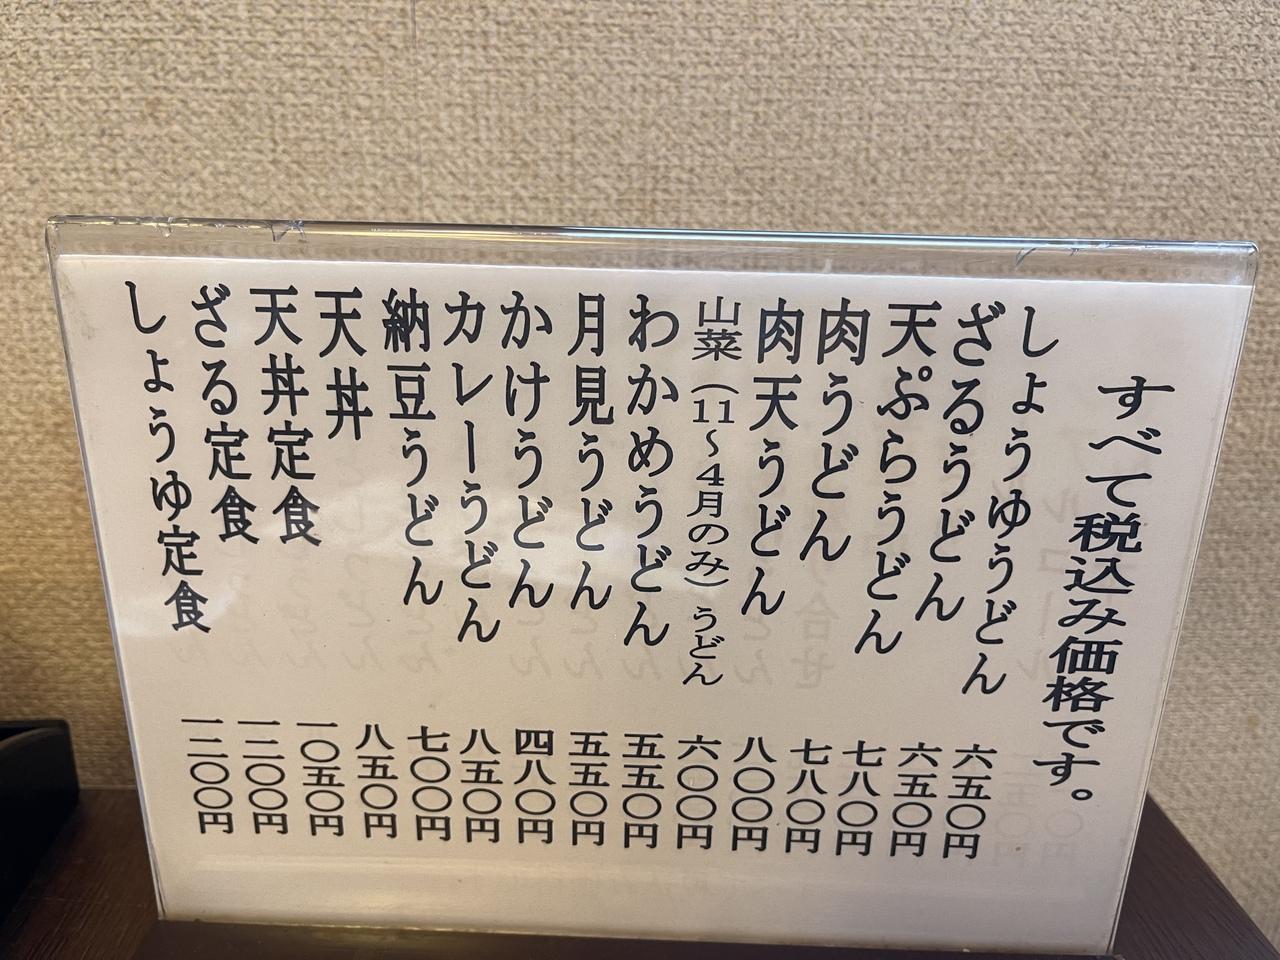 すべて税込み価格です。
しょうゆうどん 六五〇円
ざるうどん 六五〇円
天ぷらうどん 七八〇円
肉うどん 七八〇円
肉天うどん 八〇〇円
山菜（11～4月のみ）うどん 六〇〇円
わかめうどん 五五〇円
月見うどん 五五〇円
かけうどん 四八〇円
カレーうどん 八五〇円
納豆うどん 七〇〇円
天丼 八五〇円
天丼定食 一〇五〇円
ざる定食 一二〇〇円
しょうゆ定食 一二〇〇円